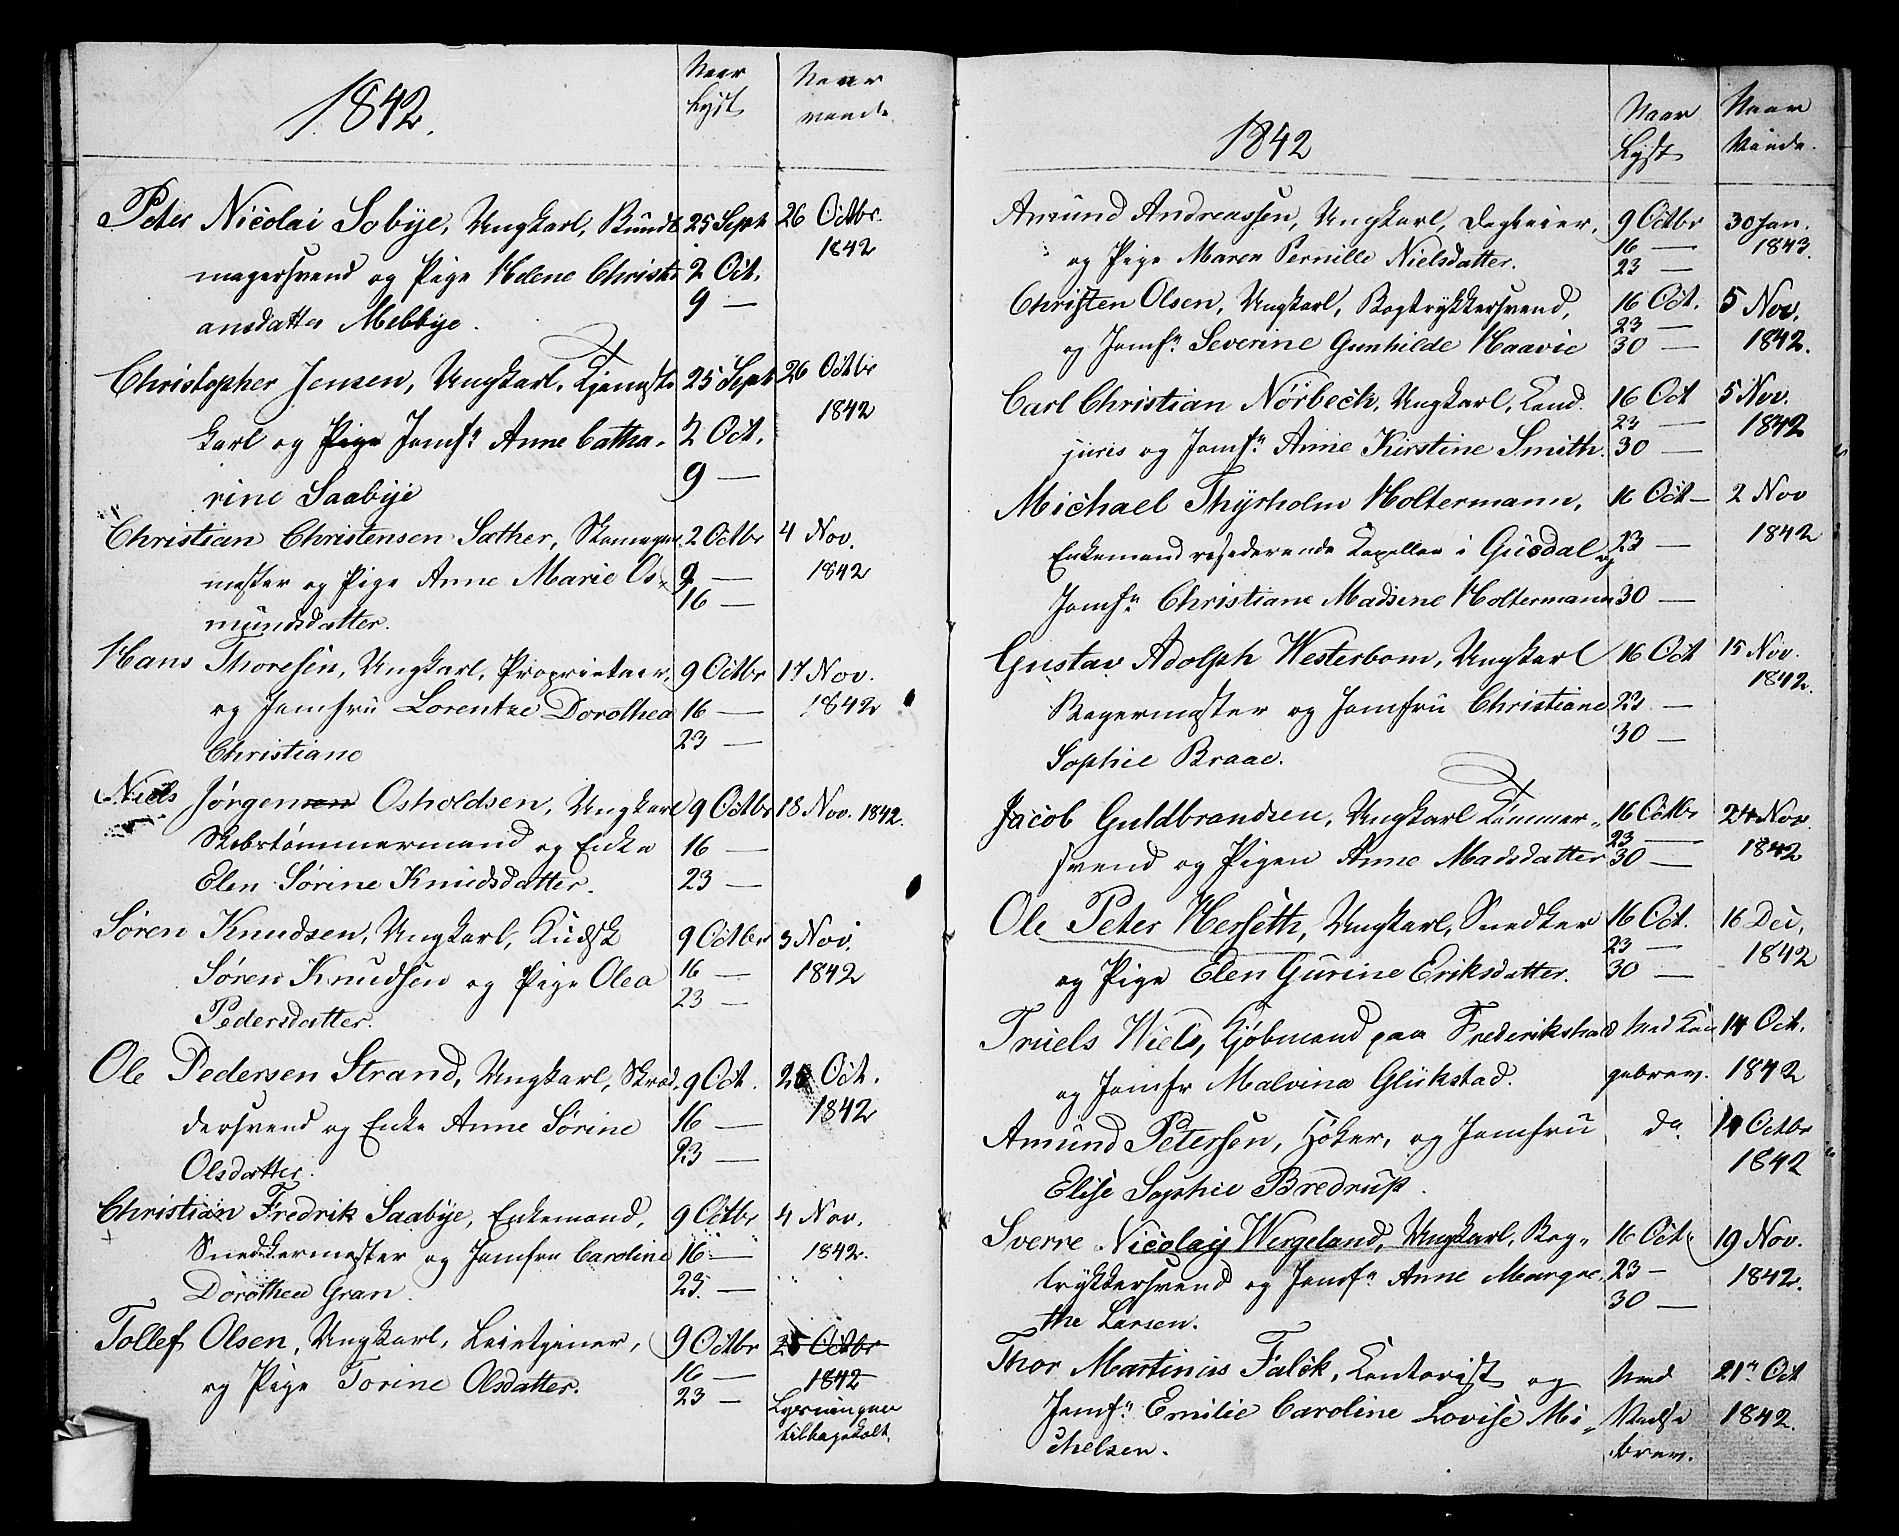 1842.
Naar Lyst
Naar viede
Peter Nicolai Sobye, Ungkarl, Bundt 25 Sept 26 Octbr.
magersvend og Pige Helene Christi 2 Oct. 1842
ansdatter Mebbye. 9 —
Christopher Jensen, Ungkarl, Tjeneste 25 Sept 26 Octbr
karl og Pige Jomf: Anne Catha- 2 Oct. 1842
rine Saabye 9 —
Christian Christensen Sæther, Skomager 2 Octbr 4 Nov.
mester og Pige Anne Marie Os- 9 — 1842
mundsdatter. 16 —
Hans Thoresen, Ungkarl, Proprietær, 9 Octbr 17 Nov.
og Jomfru Lorentze Dorothea 16 — 1842
Christiane 23 —
Niels Jørgensen Osholdsen, Ungkarl 9 Octbr 18 Nov. 1842.
Skibstømmermand og Enke 16 —
Elen Sørine Knudsdatter. 23 —
Søren Knudsen, Ungkarl, Kudsk 9 Octbr 3 Nov.
Søren Knudsen og Pige Olea 16 — 1842
Pedersdatter. 23 —
Ole Pedersen Strand, Ungkarl, Skræd 9 Oct. Oct.
dersvend og Enke Anne Sørine 16 — 1842
Olsdatter. 23 —
Christian Fredrik Saabye, Enkemand, 9 Octbr 4 Nov.
Snedkermester og Jomfru Caroline 16 — 1842.
Dorothea Gran. 23. —
Tollef Olsen, Ungkarl, Leietjener, 9 Octbr Octbr
og Pige Torine Olsdatter. 16 — 1842
23 — Lysningen
tilbagekalt.
1842
Naar Lyst
Naar Viede.
Amund Andreassen, Ungkarl, Dagleier, 9 Octbr 30 Jan.
og Pige Maren Pernille Nielsdatter. 16 — 1843.
23 —
Christen Olsen, Ungkarl, Bogtrykkersvend, 16 Oct. 5 Nov.
23 —
og Jomf: Severine Gunhilde Haavie 30 — 1842.
Carl Christian Nørbech, Ungkarl, Cand. 16 Oct 5 Nov.
23 — 1842
juris og Jomf: Anne Kirstine Smith. 30 —
Michael Thyrholm Holtermann, 16 Oct — 2 Nov
Enkemand residerende Kapellan i Gusdal og 23 — 1842
Jomf: Christiane Madsene Holtermann 30 —
Gustav Adolph Westerbom, Ungkarl 16 Oct 15 Nov.
Bagermester og Jomfru Christiane 23 — 1842.
Sophie Braae. 30 —
Jacob Guldbrandsen, Ungkarl Tømmer- 16 Octbr 24 Nov.
23 —
svend og Pigen Anne Madsdatter 30 — 1842
Ole Peter Herseth, Ungkarl, Snedker 16 Oct. 16 Dec.
23 — 1842
og Pige Elen Gurine Eriksdatter. 30 —
Truels Wiels, Kjøbmand paa Frederikshald Med Kon 14 Oct.
og Jomfr Malvina Glükstad. gebrev. 1842
Amund Petersen, Høker, og Jomfru do Octbr
Elise Sophie Bredrup. 1842
Sverre Nicolay Wergeland, Ungkarl, Bog- 16 Oct. 19 Nov.
trykkersvend og Jomf: Anne Margre 23 — 1842.
the Larsen. 30 —
Thor Martinius Falck, Contorist og Med 21 Oct
Jomf: Emilie Caroline Lovise Mi- Vielse 1842.
chelsen. brev.